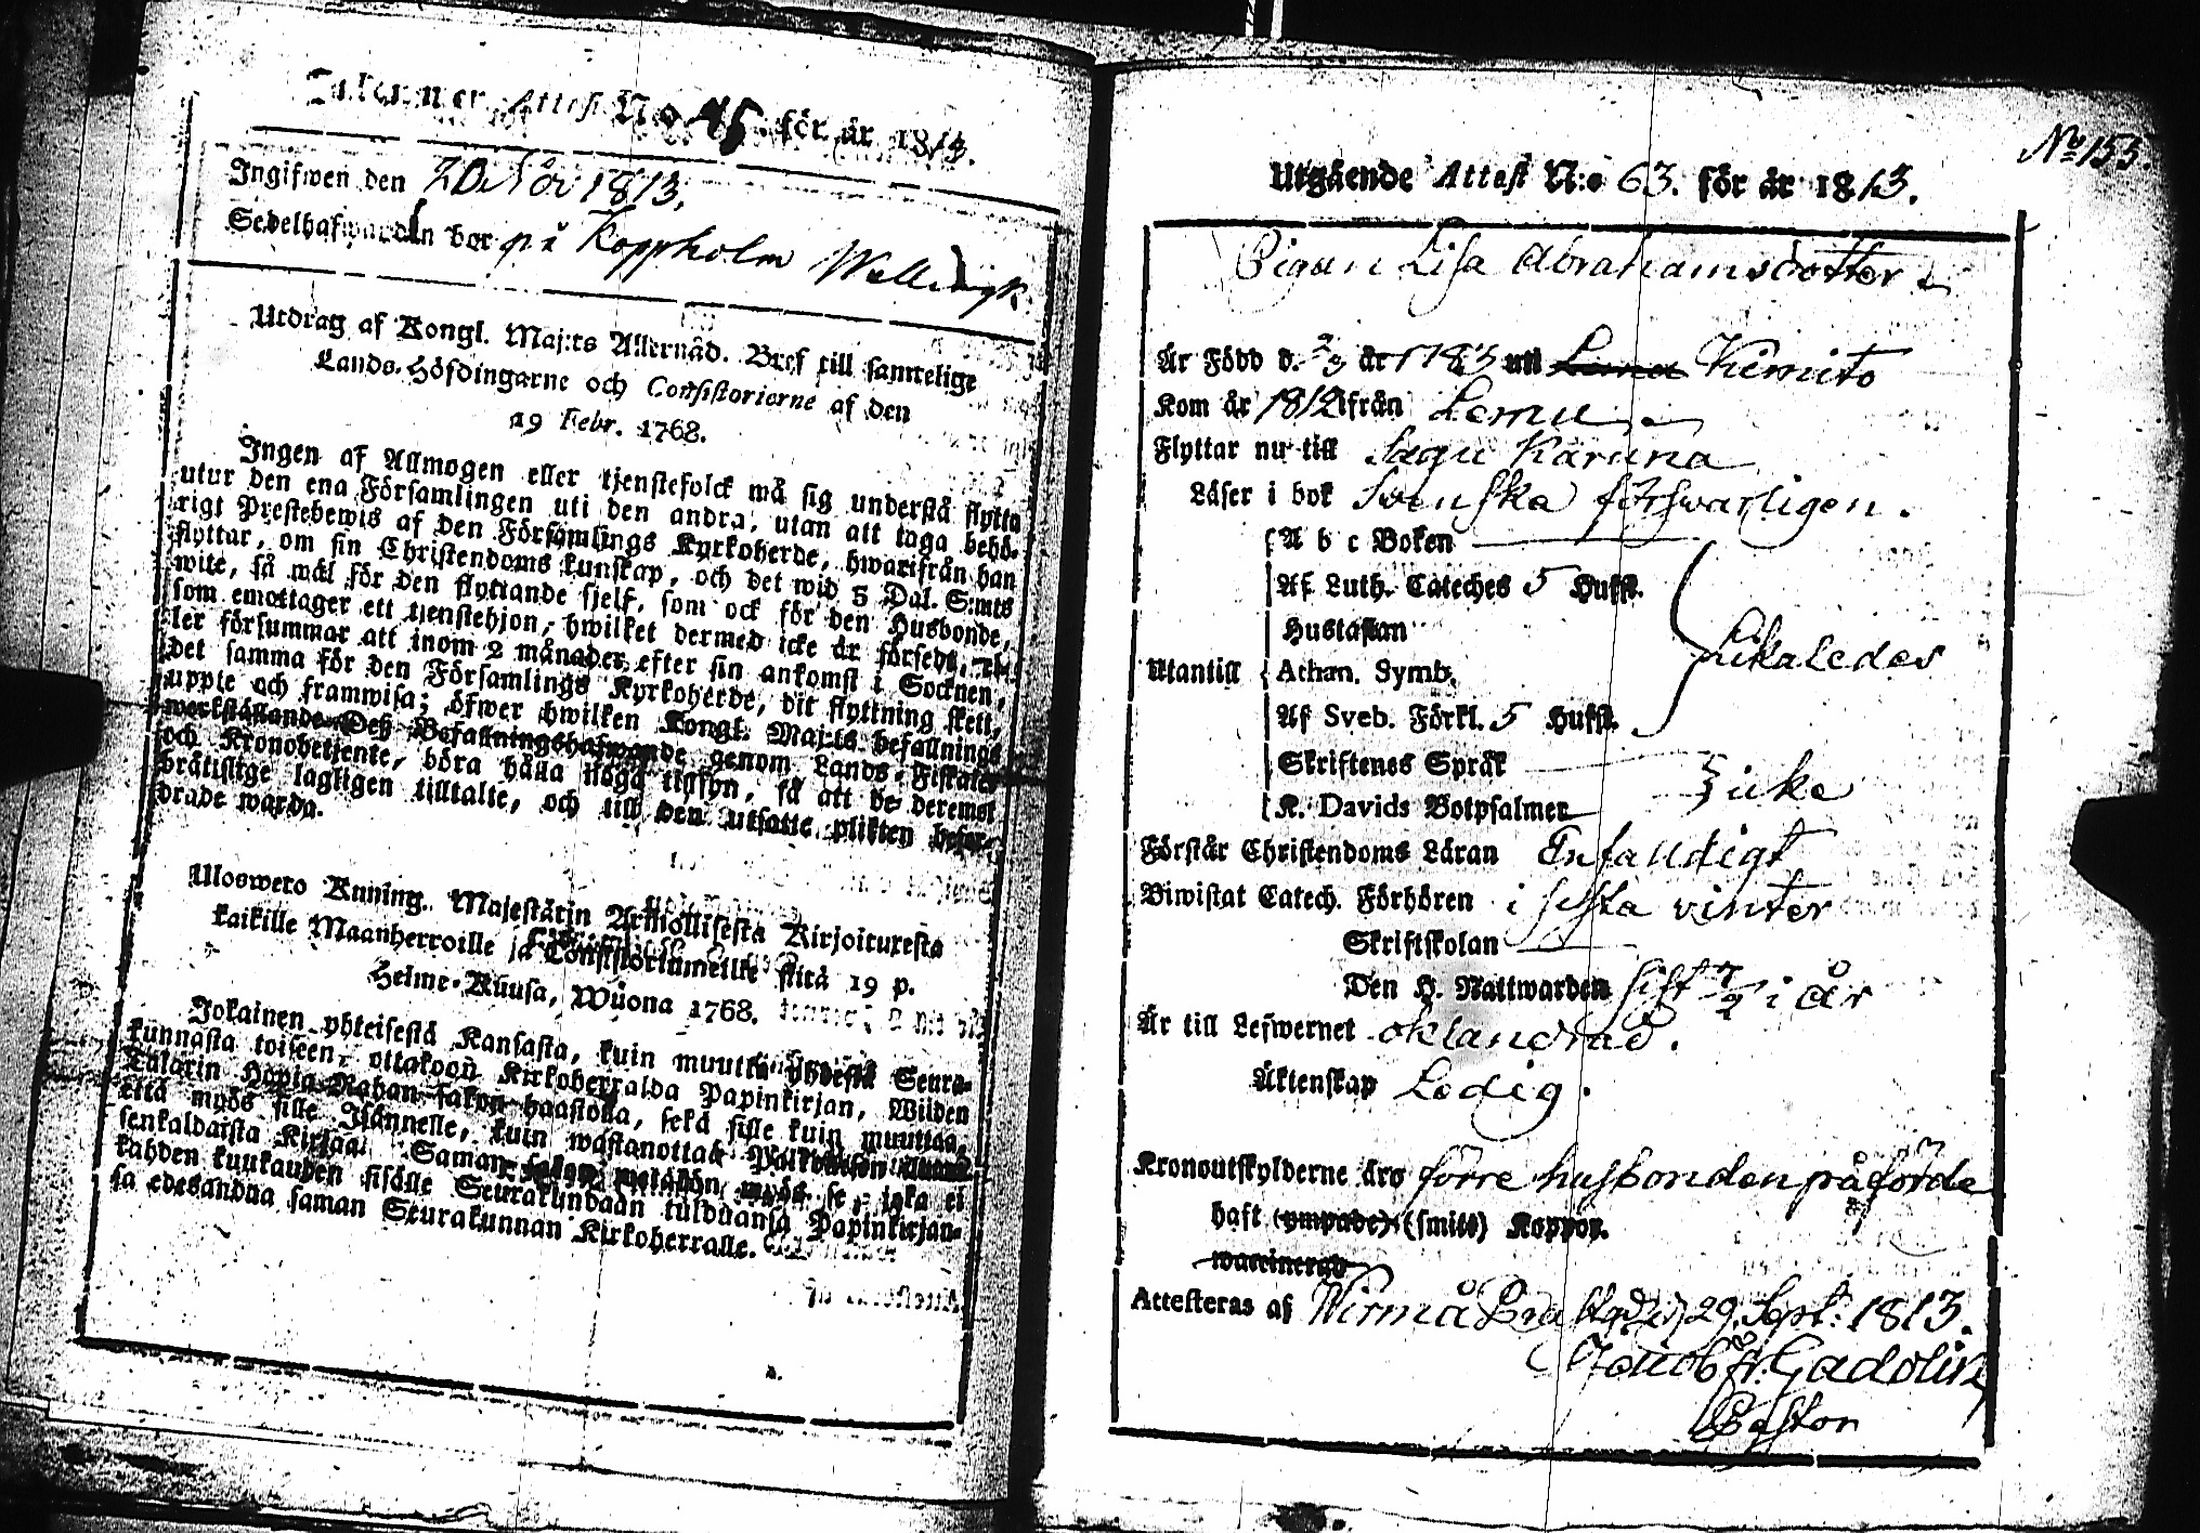 Inkommen Attest N:o 45. för år 1813.
Ingifwen den 20 Nov 1813.
Sedelhafwarden bor på Koppholm
Utdrag af Kongl. Maj:ts Allernåd. Bref till samtelige
Lands-Höfdingarne och Consistorierne af den
19 Febr. 1768.
Ingen af Allmogen eller tjenstefolck må sig understå flytta
utur den ena Församlingen uti den andra, utan att taga behö-
rigt Prestebewis af den Församlings Kyrkoherde, hwarifrån han
flyttar, om sin Christendoms kunskap, och det wid 5 Dal. S:mts
wite, så wäl för den flyttande sjelf, som ock för den Husbonde,
som emottager ett tjenstehjon, hwilket dermed icke är försedt, el-
ler försummar att inom 2 månader efter sin ankomst i Socknen,
det samma för den Församlings Kyrkoherde, dit flyttning skett,
uppte och framwisa; öfwer hwilken Kongl. Maj:ts befallnings
werkställande Deß Befallningshafwande genom Lands-Fiskaler
och Kronobetjente, böra hålla noga tillsyn, så att de deremot
brätslige lagligen tilltalte, och till den utsatte plikten befor-
drade warda.
Uloswero Kuning. Majestätin Armollisesta Kirjoituxesta
kaikille Maanherroille ja Consistoriumeille siitä 19 p.
Helme-Kuusa, Wuona 1768.
Jokainen yhteisestä Kansasta, kuin muutta yhdestä Seura-
kunnasta toiseen, ottakoon Kirkoherralda Papinkirjan, Wilden
Talarin Hopia-Rahan sakon haastolla, sekä sille kuin muuttaa,
että myös sille Isännelle, kuin wastanottaa
senkaldaista Kirjaa. Saman sakon myös se, joka ei
kahden kuukauden sisälle Seurakundaan tulduansa Papinkirjan-
sa edesandua saman Seurakunnan Kirkoherralle.
No 155.
Utgående Attest N:o 63. för år 1813.
Pigan Lisa Abrahamsdotter
Är Född d. 2/9 år 1783 uti Kimito
Kom år 1812 ifrån Lemu
Flyttar nu till Sagu Karuna
Läser i bok Svenska försvarligen.
A b c Boken
Af Luth. Cateches 5 Hufst.
Hustaflan
Utantill Athan. Symb. Likaledes
Af Sveb. Förkl. 5 Hufst.
Skriftenes Språk
K. Davids Botpsalmer icke
Förstår Christendoms Läran Enfaldigt
Biwistat Catech. Förhören i sista vinter
Skriftskolan
Den H. Nattwarden sist i år
Är till Lefwernet oklandrad.
Äktenskap Ledig.
Kronoutskylderne äro förre husbonden påförde
haft (ympade) (smitt) Koppor.
waccinerad
Attesteras af Wirmå Prästgård 29. Sept: 1813.
Jacob Gadolin
Pastor